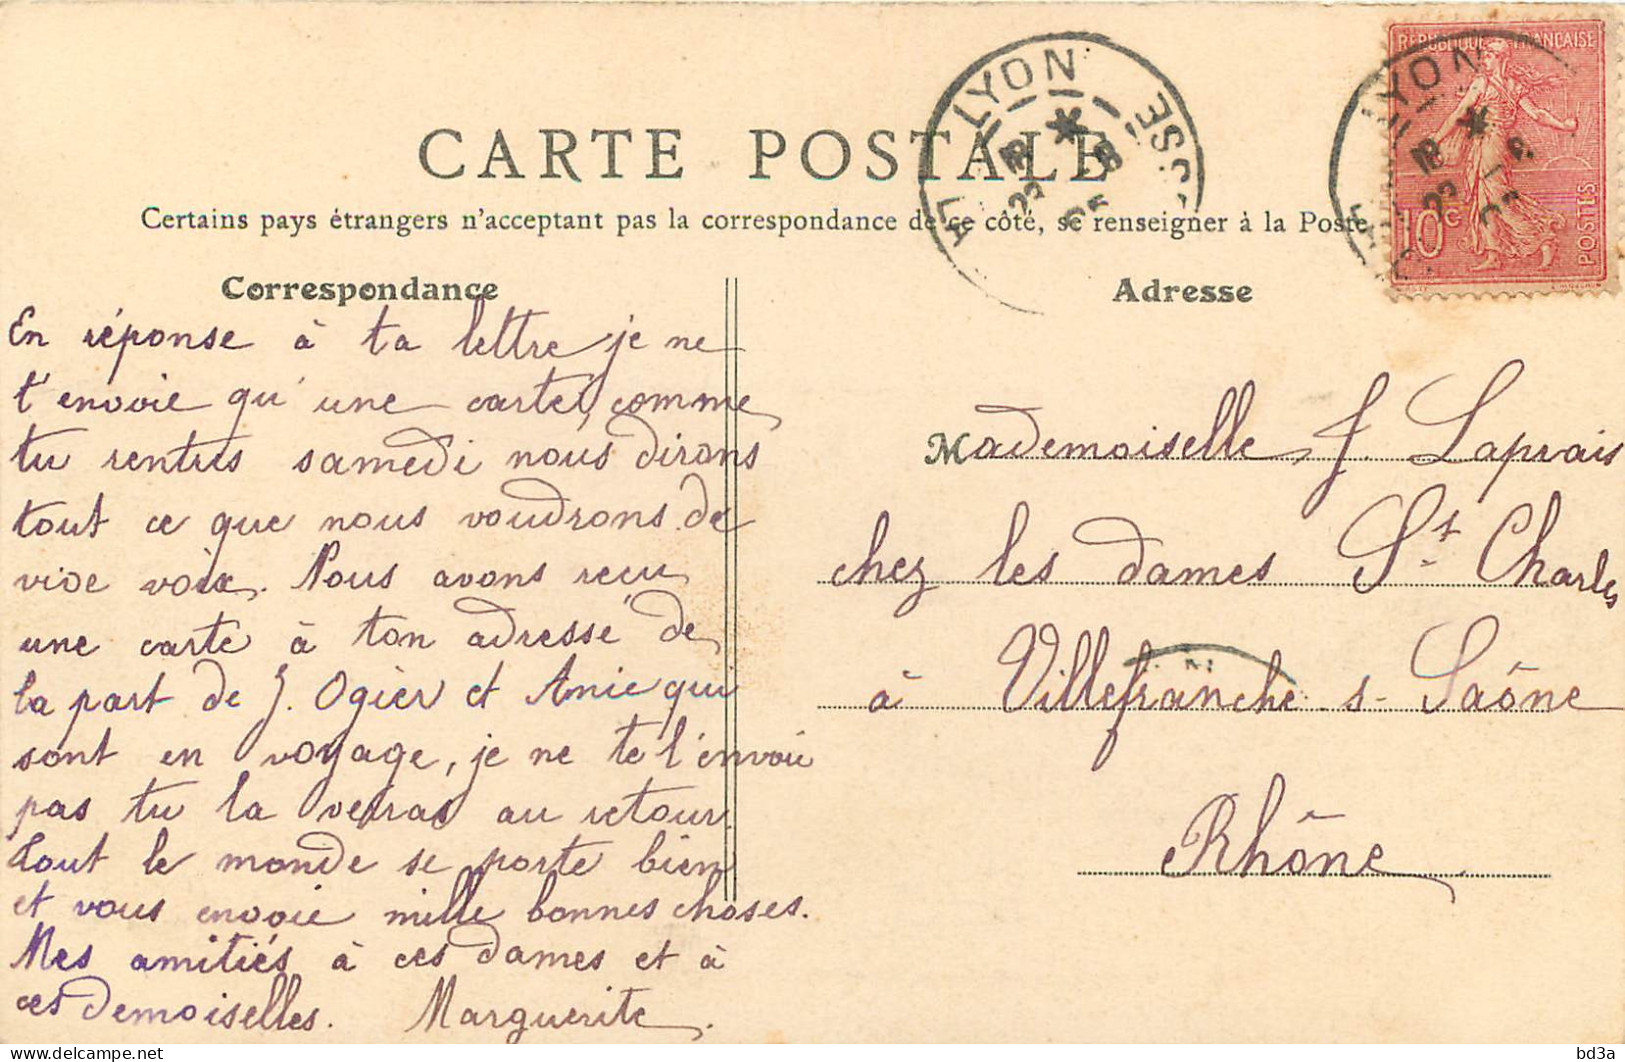 CARTE POSTALE
Certains pays étrangers n'acceptant pas la correspondance de ce côté, se renseigner à la Poste
Correspondance
En réponse à ta lettre je ne
t'envoie qu'une carte, comme
tu rentres samedi nous dirons
tout ce que nous voudrons de
vive voix. Nous avons reçu
une carte à ton adresse de
la part de J. Ogier et Amie qui
sont en voyage, je ne te l'envoie
pas tu la verras au retour.
Tout le monde se porte bien
et vous envoie mille bonnes choses.
Mes amitiés à ces dames et à
ces demoiselles. Marguerite.
Adresse
Mademoiselle J. Laprais
chez les dames St Charles
à Villefranche s- Saône
Rhône
LYON
RÉPUBLIQUE FRANÇAISE
10c
POSTES
LYON
delcampe.net
bd3a